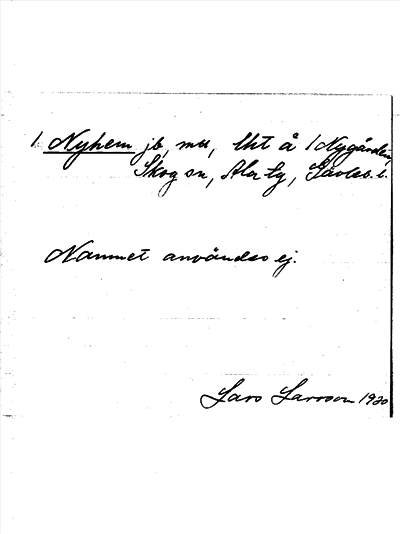 1. Nyhem jb, mu, lht å 1 Nygården,
Skog sn, Ala tg, Gävleb. l.
Namnet användes ej.
Lars Larsson 1920